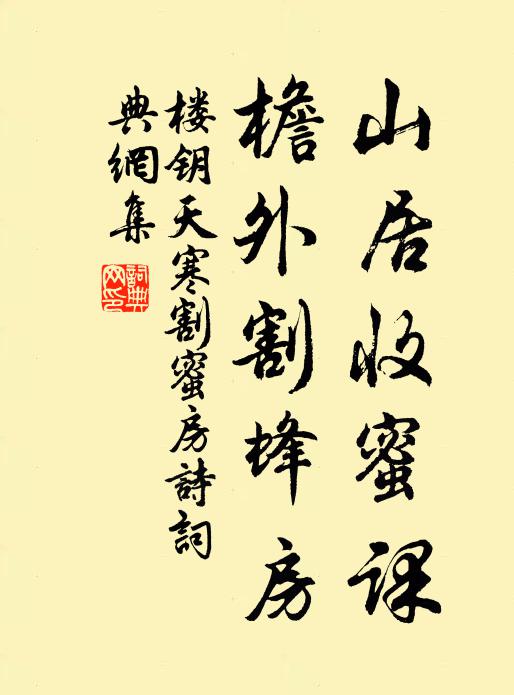 山居收蜜课
檐外割蜂房
楼钥天寒割蜜房詩詞
典網集
詞典网印